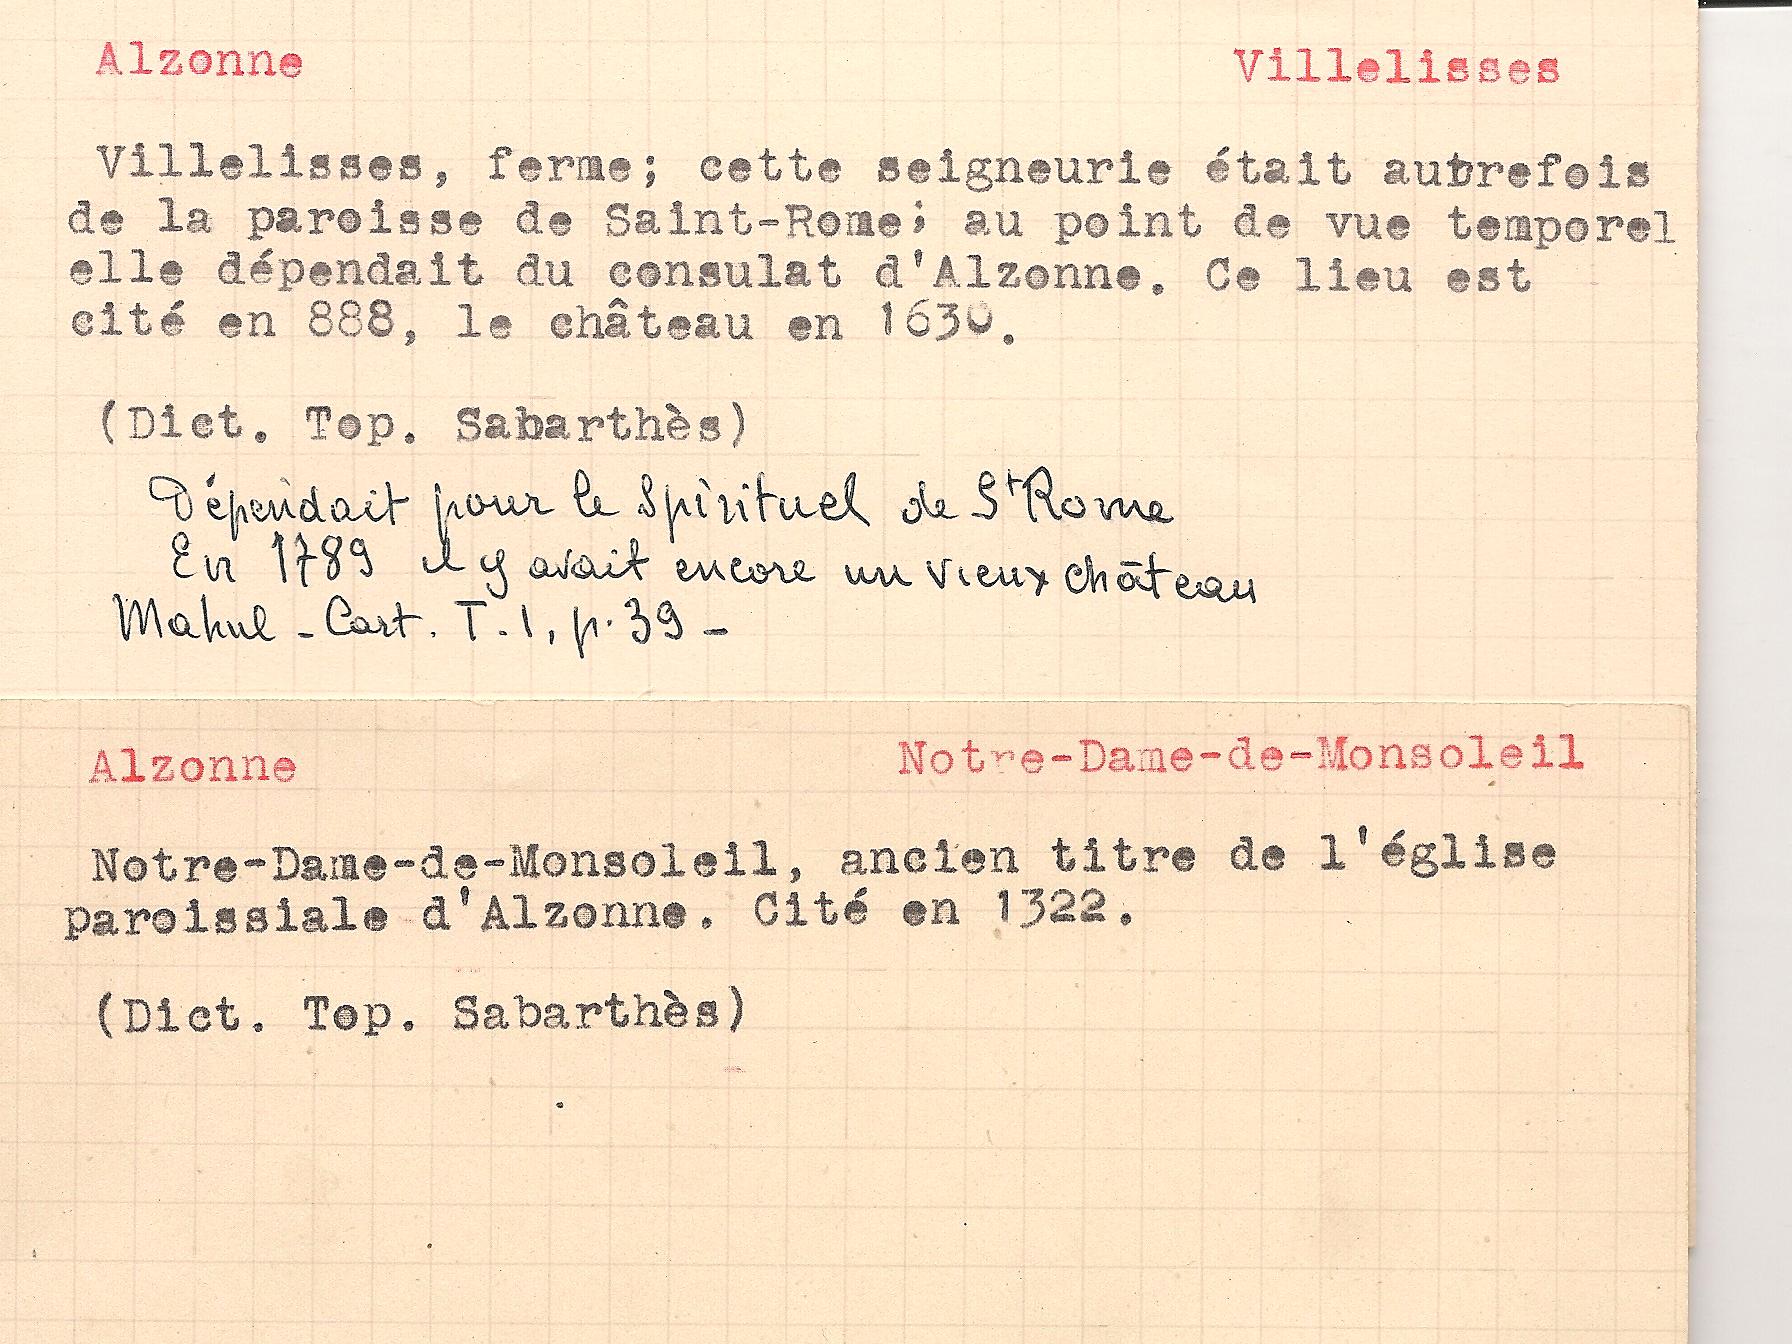 Alzonne Villelisses
Villelisses, ferme; cette seigneurie était autrefois
de la paroisse de Saint-Rome; au point de vue temporel
elle dépendait du consulat d'Alzonne. Ce lieu est
cité en 888, le château en 1630.
(Dict. Top. Sabarthès)
Dépendait pour le Spirituel de St Rome
En 1789 il y avait encore un vieux château
Mahul - Cart. T.1, p.39 -
Alzonne Notre-Dame-de-Monsoleil
Notre-Dame-de-Monsoleil, ancien titre de l'église
paroissiale d'Alzonne. Cité en 1322.
(Dict. Top. Sabarthès)